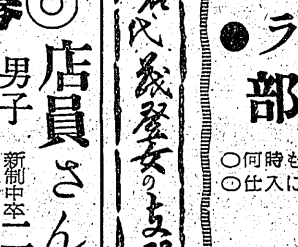 ラ
部
○何時も
○仕入に
代義登女の支
店員さん
男子
新制中卒二